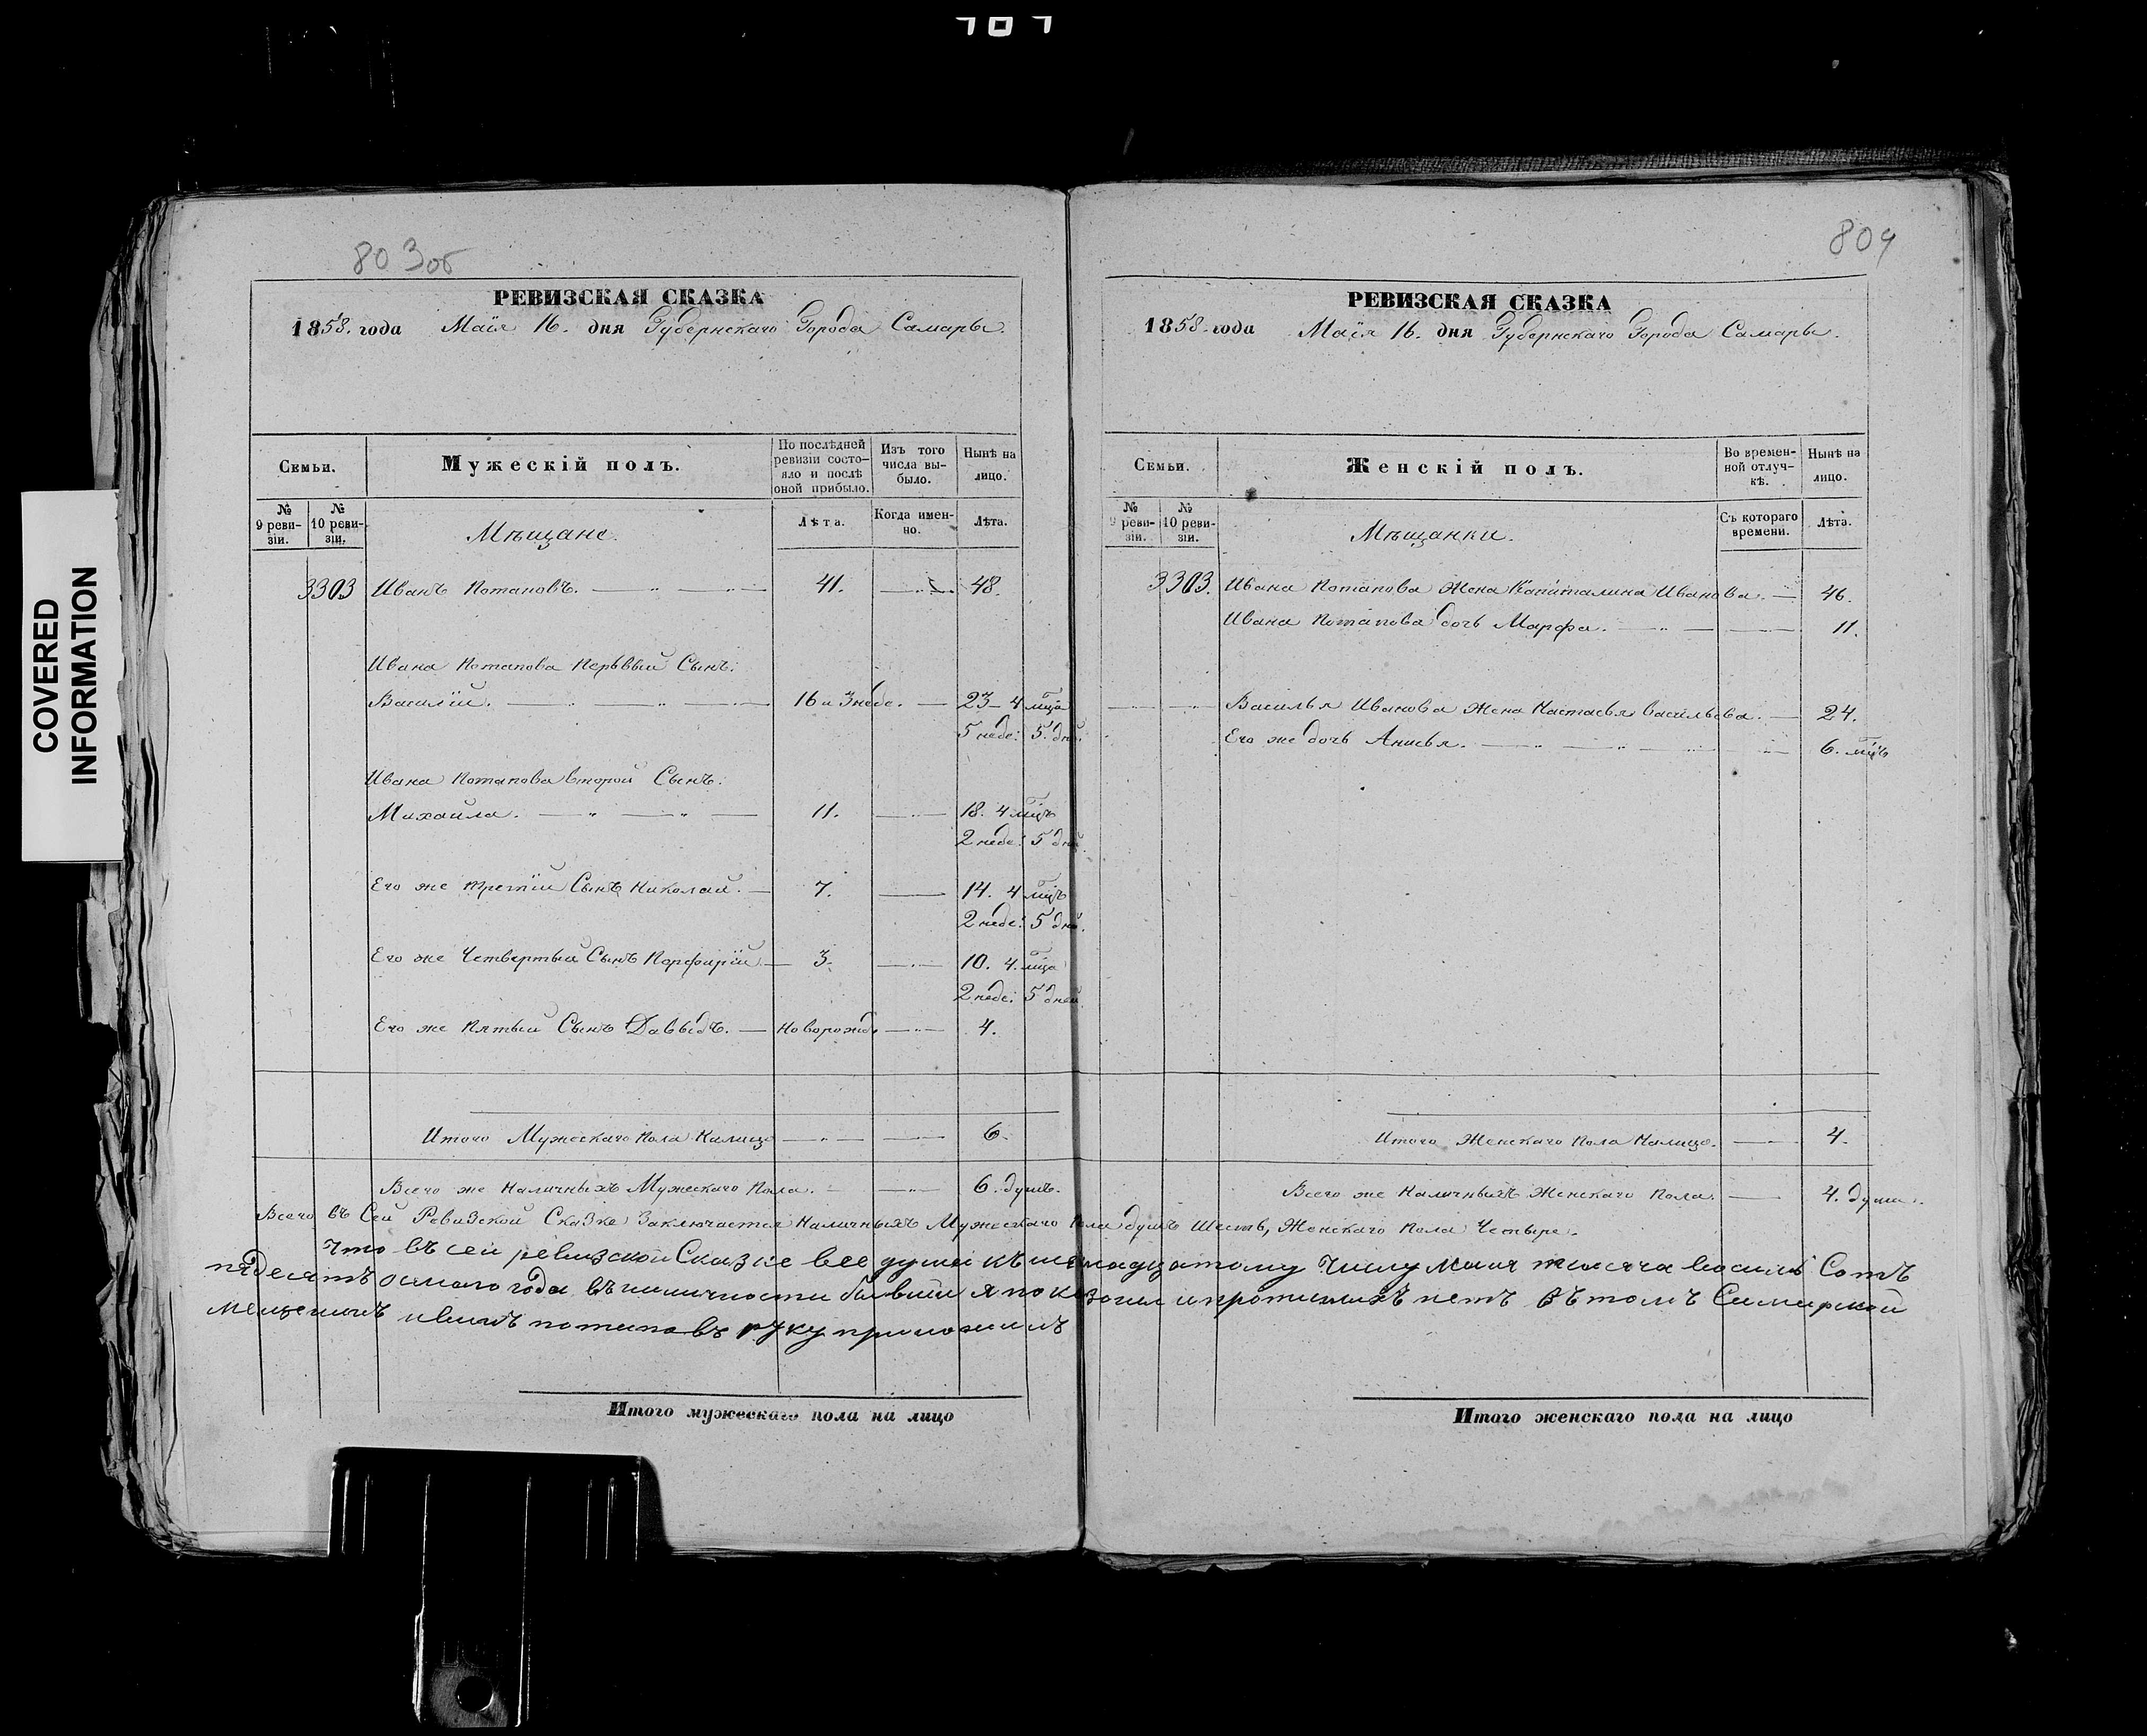 COVERED INFORMATION
803об
РЕВИЗСКАЯ СКАЗКА
1858. года Маія 16. дня Губернскаго Города Самары.
Семьи.
Мужескій полъ.
По послѣдней ревизіи состояло и послѣ оной прибыло.
Изъ того числа выбыло.
Нынѣ на лицо.
№ 9 ревизіи.
№ 10 ревизіи.
Мѣщане.
Лѣта.
Когда именно.
Лѣта.
3303 Иванъ Потаповъ. 41. 48.
Ивана Потапова Перьвый Сынъ:
Василій. 16 и 3 неде. 23 4 мца
5 неде: 5. дней.
Ивана Потапова второй Сынъ:
Михайла. 11. 18. 4 мцъ
2 неде: 5 дней.
Его же третій Сынъ Николай. 7. 14. 4 мцъ
2 неде: 5 дней.
Его же Четвертый Сынъ Порфирій 3. 10. 4. мца
2 неде: 5 дней
Его же Пятый Сынъ Давыдъ. Новорожд. 4.
Итого Мужескаго Пола Налицо 6.
Всего же Наличныхъ Мужескаго Пола. 6. душъ.
804
РЕВИЗСКАЯ СКАЗКА
1858. года Маія 16. дня Губернскаго Города Самары.
Семьи.
Женскій полъ.
Во временной отлучкѣ.
Нынѣ на лицо.
№ 9 ревизіи.
№ 10 ревизіи.
Мѣщанки.
Съ котораго времени.
Лѣта.
3303. Ивана Потапова Жена Капиталина Иванова. 46.
Ивана Потапова дочь Марфа. 11.
Василья Иванова Жена Настасья Васильева. 24.
Его же дочь Анисья. 6. мцъ
Итого Женскаго Пола Налицо. 4.
Всего же Наличныхъ Женскаго Пола. 4. души.
Всего въ Сей Ревизской Сказке Заключается Наличныхъ Мужескаго Пола душъ Шесть, Женскаго Пола Четыре.
Что въ сей ревизской Сказке все души къ шеснадцатому Числу Маия тысяча восимь Сотъ
пядесятъ осмаго года въ наличности бывши я показоны и протчихъ нетъ въ томъ Самарской
мещенинъ иванъ потаповъ руку приложилъ
Итого мужескаго пола на лицо
Итого женскаго пола на лицо